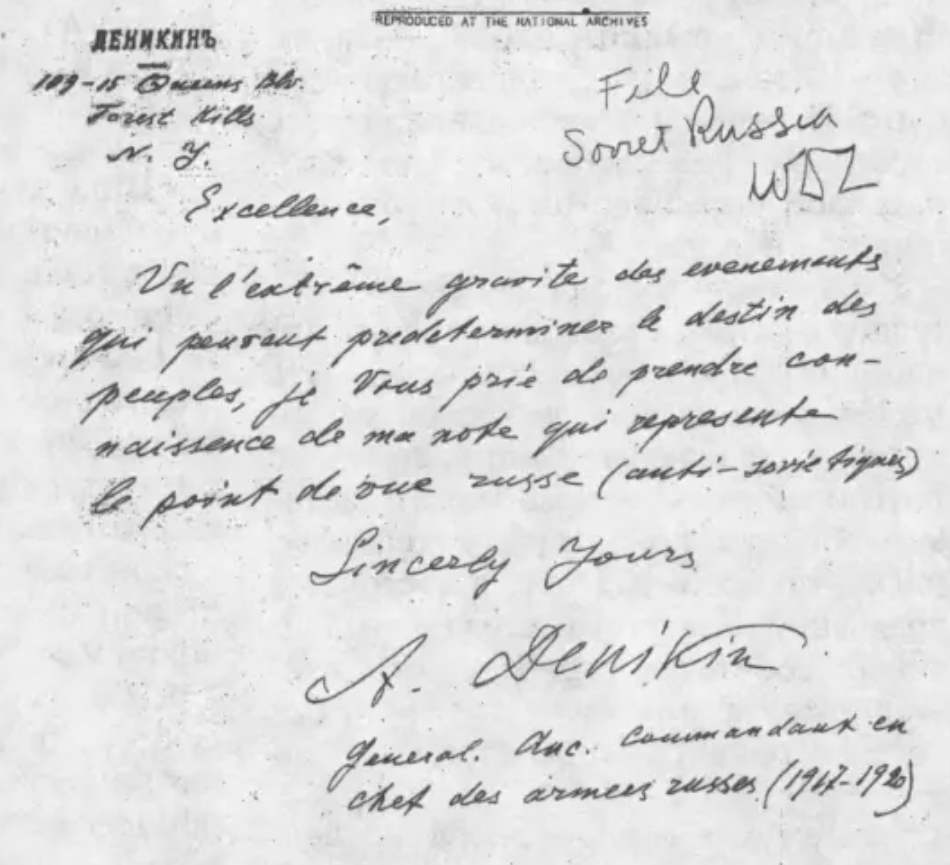 REPRODUCED AT THE NATIONAL ARCHIVES
ДЕНИКИНЪ
109-15 Queens Blv.
Forest Hills
N. Y.
File
Soviet Russia
WDL
Excellence,
Vu l'extrême gravite des evenements
qui peuvent predeterminer le destin des
peuples, je Vous prie de prendre con-
naissence de ma note qui represente
le point de vue russe (anti-sovietiques)
Sincerly Yours
A. Denikin
General. Anc. Commandant en
chef des armees russes (1917-1920)